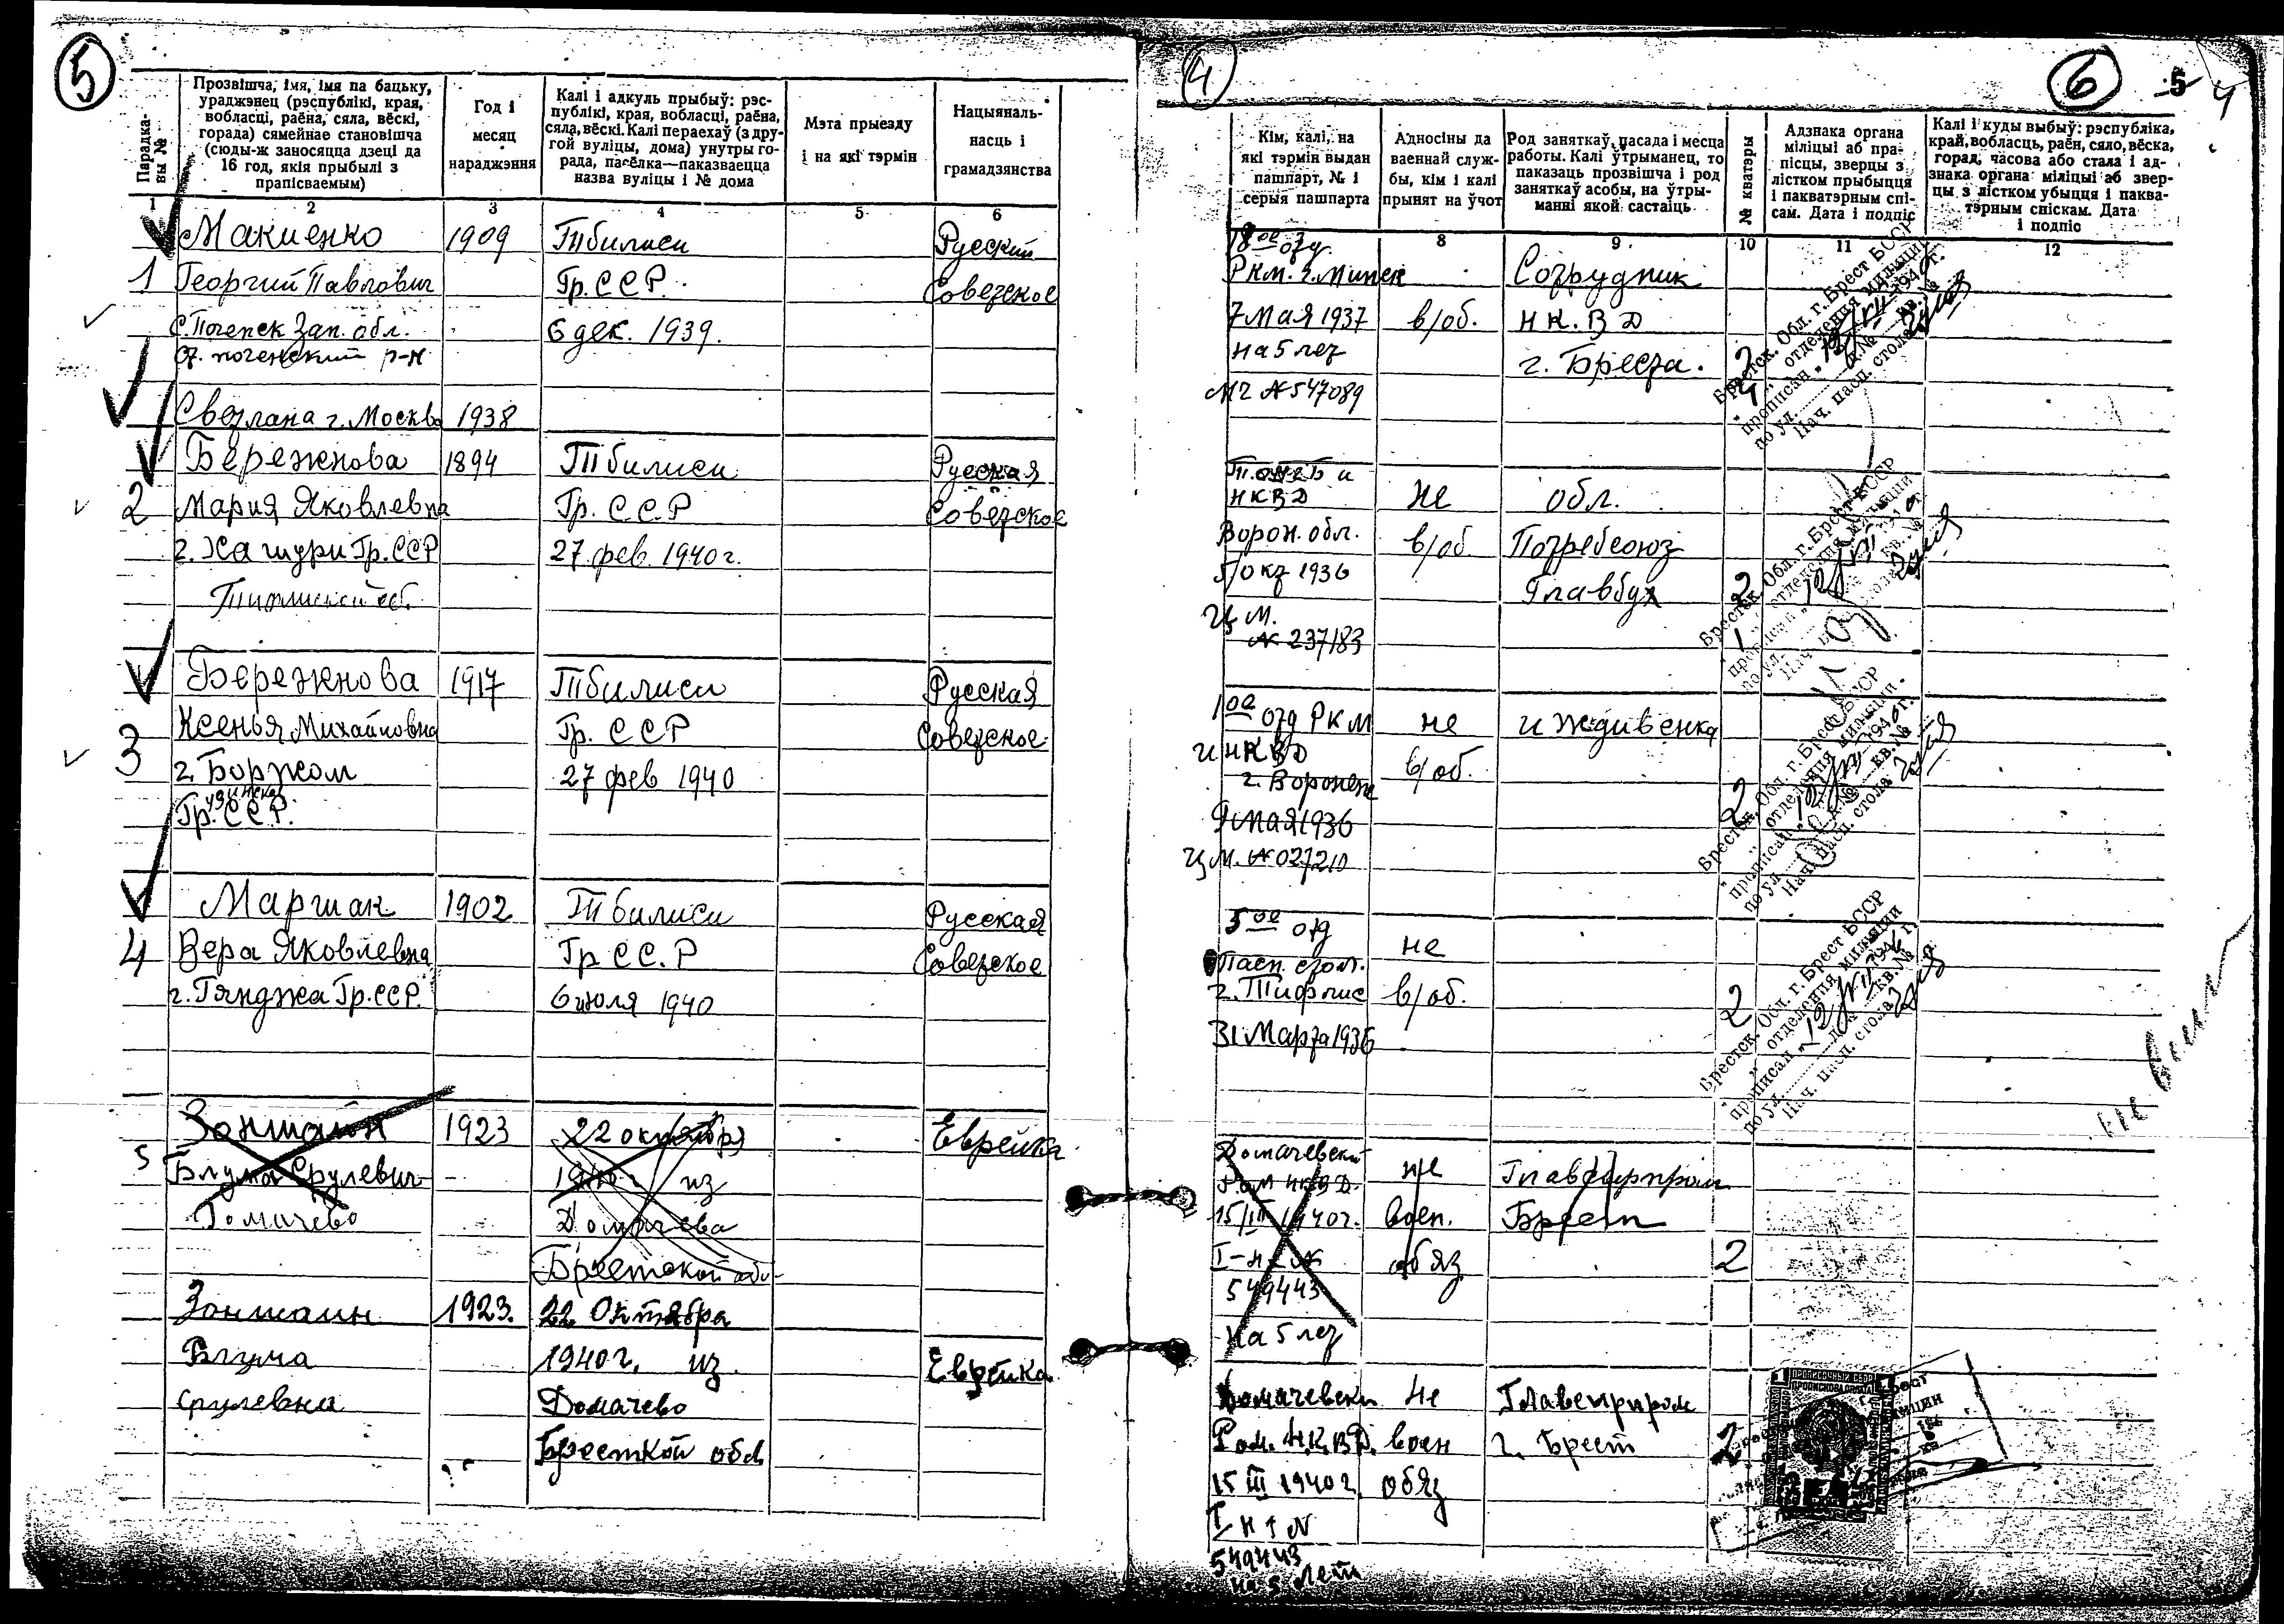 5
Парадка-
вы №
Прозвішча, імя, імя па бацьку,
ураджэнец (рэспублікі, края,
вобласці, раёна, сяла, вёскі,
горада) сямейнае становішча
(сюды-ж заносяцца дзеці да
16 год, якія прыбылі з
прапісваемым)
Год і
месяц
нараджэння
Калі і адкуль прыбыў: рэс-
публікі, края, вобласці, раёна,
сяла, вёскі. Калі пераехаў (з дру-
гой вуліцы, дома) унутры го-
рада, пасёлка—паказваецца
назва вуліцы і № дома
Мэта прыезду
і на які тэрмін
Нацыяналь-
насць і
грамадзянства
1 2 3 4 5 6
Макиенко 1909 Тбилиси Русский
1 Георгий Павлович Гр. ССР. Советское
6 дек. 1939.
Светлана г. Москва 1938
Бережнова 1894 Тбилиси Русская
2 Мария Яковлевна Гр. С.С.Р Советское
г. Хашури Гр. ССР 27. фев. 1940 г.
Бережнова 1917 Тбилиси Русская
3 Ксенья Михайловна Гр. ССР Советское
г. Боржом 27 фев 1940
Гр. ССР.
Маршак 1902 Тбилиси Русская
4 Вера Яковлевна Гр СС.Р Советское
г. Гянджа Гр. ССР. 6 июля 1940
Зонштайн 1923 22 октября Еврейка
5 Блума Срулевич 1940 г. из
Томачево Домачева
Брестской обл.
Зонштаин 1923. 22 Октября
Блума 1940 г. из Еврейка
Срулевна Домачево
Бресткой обл
4
6
5 4
Кім, калі, на
які тэрмін выдан
пашпарт, № і
серыя пашпарта
Адносіны да
ваеннай служ-
бы, кім і калі
прынят на ўчот
Род заняткаў, пасада і месца
работы. Калі ўтрыманец, то
паказаць прозвішча і род
заняткаў асобы, на ўтры-
манні якой састаіць
№ кватэры
Адзнака органа
міліцыі аб пра-
пісцы, зверцы з
лістком прыбыцця
і пакватэрным спі-
сам. Дата і подпіс
Калі і куды выбыў: рэспубліка,
край, вобласць, раён, сяло, вёска,
горад, часова або стала і ад-
знака органа міліцыі аб звер-
цы з лістком убыцця і паква-
тэрным спіскам. Дата
і подпіс
8 9 10 11 12
18ое отд
Ркм. г. Минск Сотрудник
7 Мая 1937 в/об. Н К. В Д
на 5 лет г. Бреста. 2
МЧ № 547089
Брестск. Обл. г. Брест БССР
отделения милиции
прописан 194 г.
по ул. д. № кв. №
Нач. пасп. стола
НКВД не обл.
Ворон. обл. в/об Потребсоюз
5/окт 1936 Главбух 2
ЦМ.
№ 237183
Брестск. Обл. г. Брест БССР
1ое отд РКМ не иждивенка
и НКВД в/об.
г. Воронеж
9 мая 1936 2
ЦМ. № 027210
Брестск. Обл. г. Брест БССР
отделения милиции
прописан 194 г.
по ул. д. № кв. №
Нач. пасп. стола
5ое отд не
Пасп. стол.
г. Тифлис в/об. 2
31 Марта 1936
Брестск. Обл. г. Брест БССР
отделения милиции
прописан 194 г.
по ул. кв. №
Нач. пасп. стола
Домачевский не
Ром НКВД
15/III 1940 г. воен. Брест
обяз 2
549443
на 5 лет
Домачевски не
Ром. Н.К.ВД. воен г. Брест 2
15 III 1940 г. обяз
549443
на 5 лет
ПРОПИСОЧНЫЙ СБОР